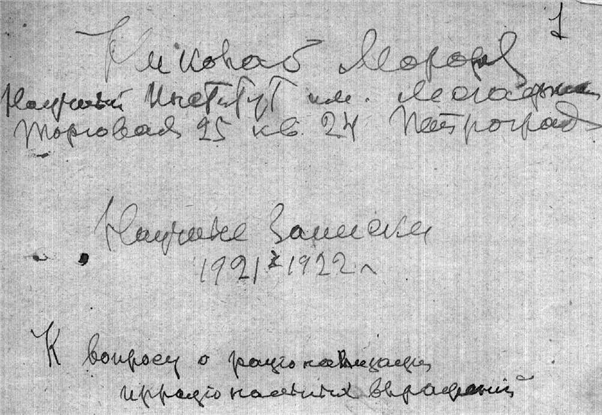 1
Николай Морозов
Научный Институт им. Лесгафта
Торговая 25 кв. 24 Петроград
Научные Записки
1921 и 1922 г
К вопросу о рационализации
иррациональных выражений